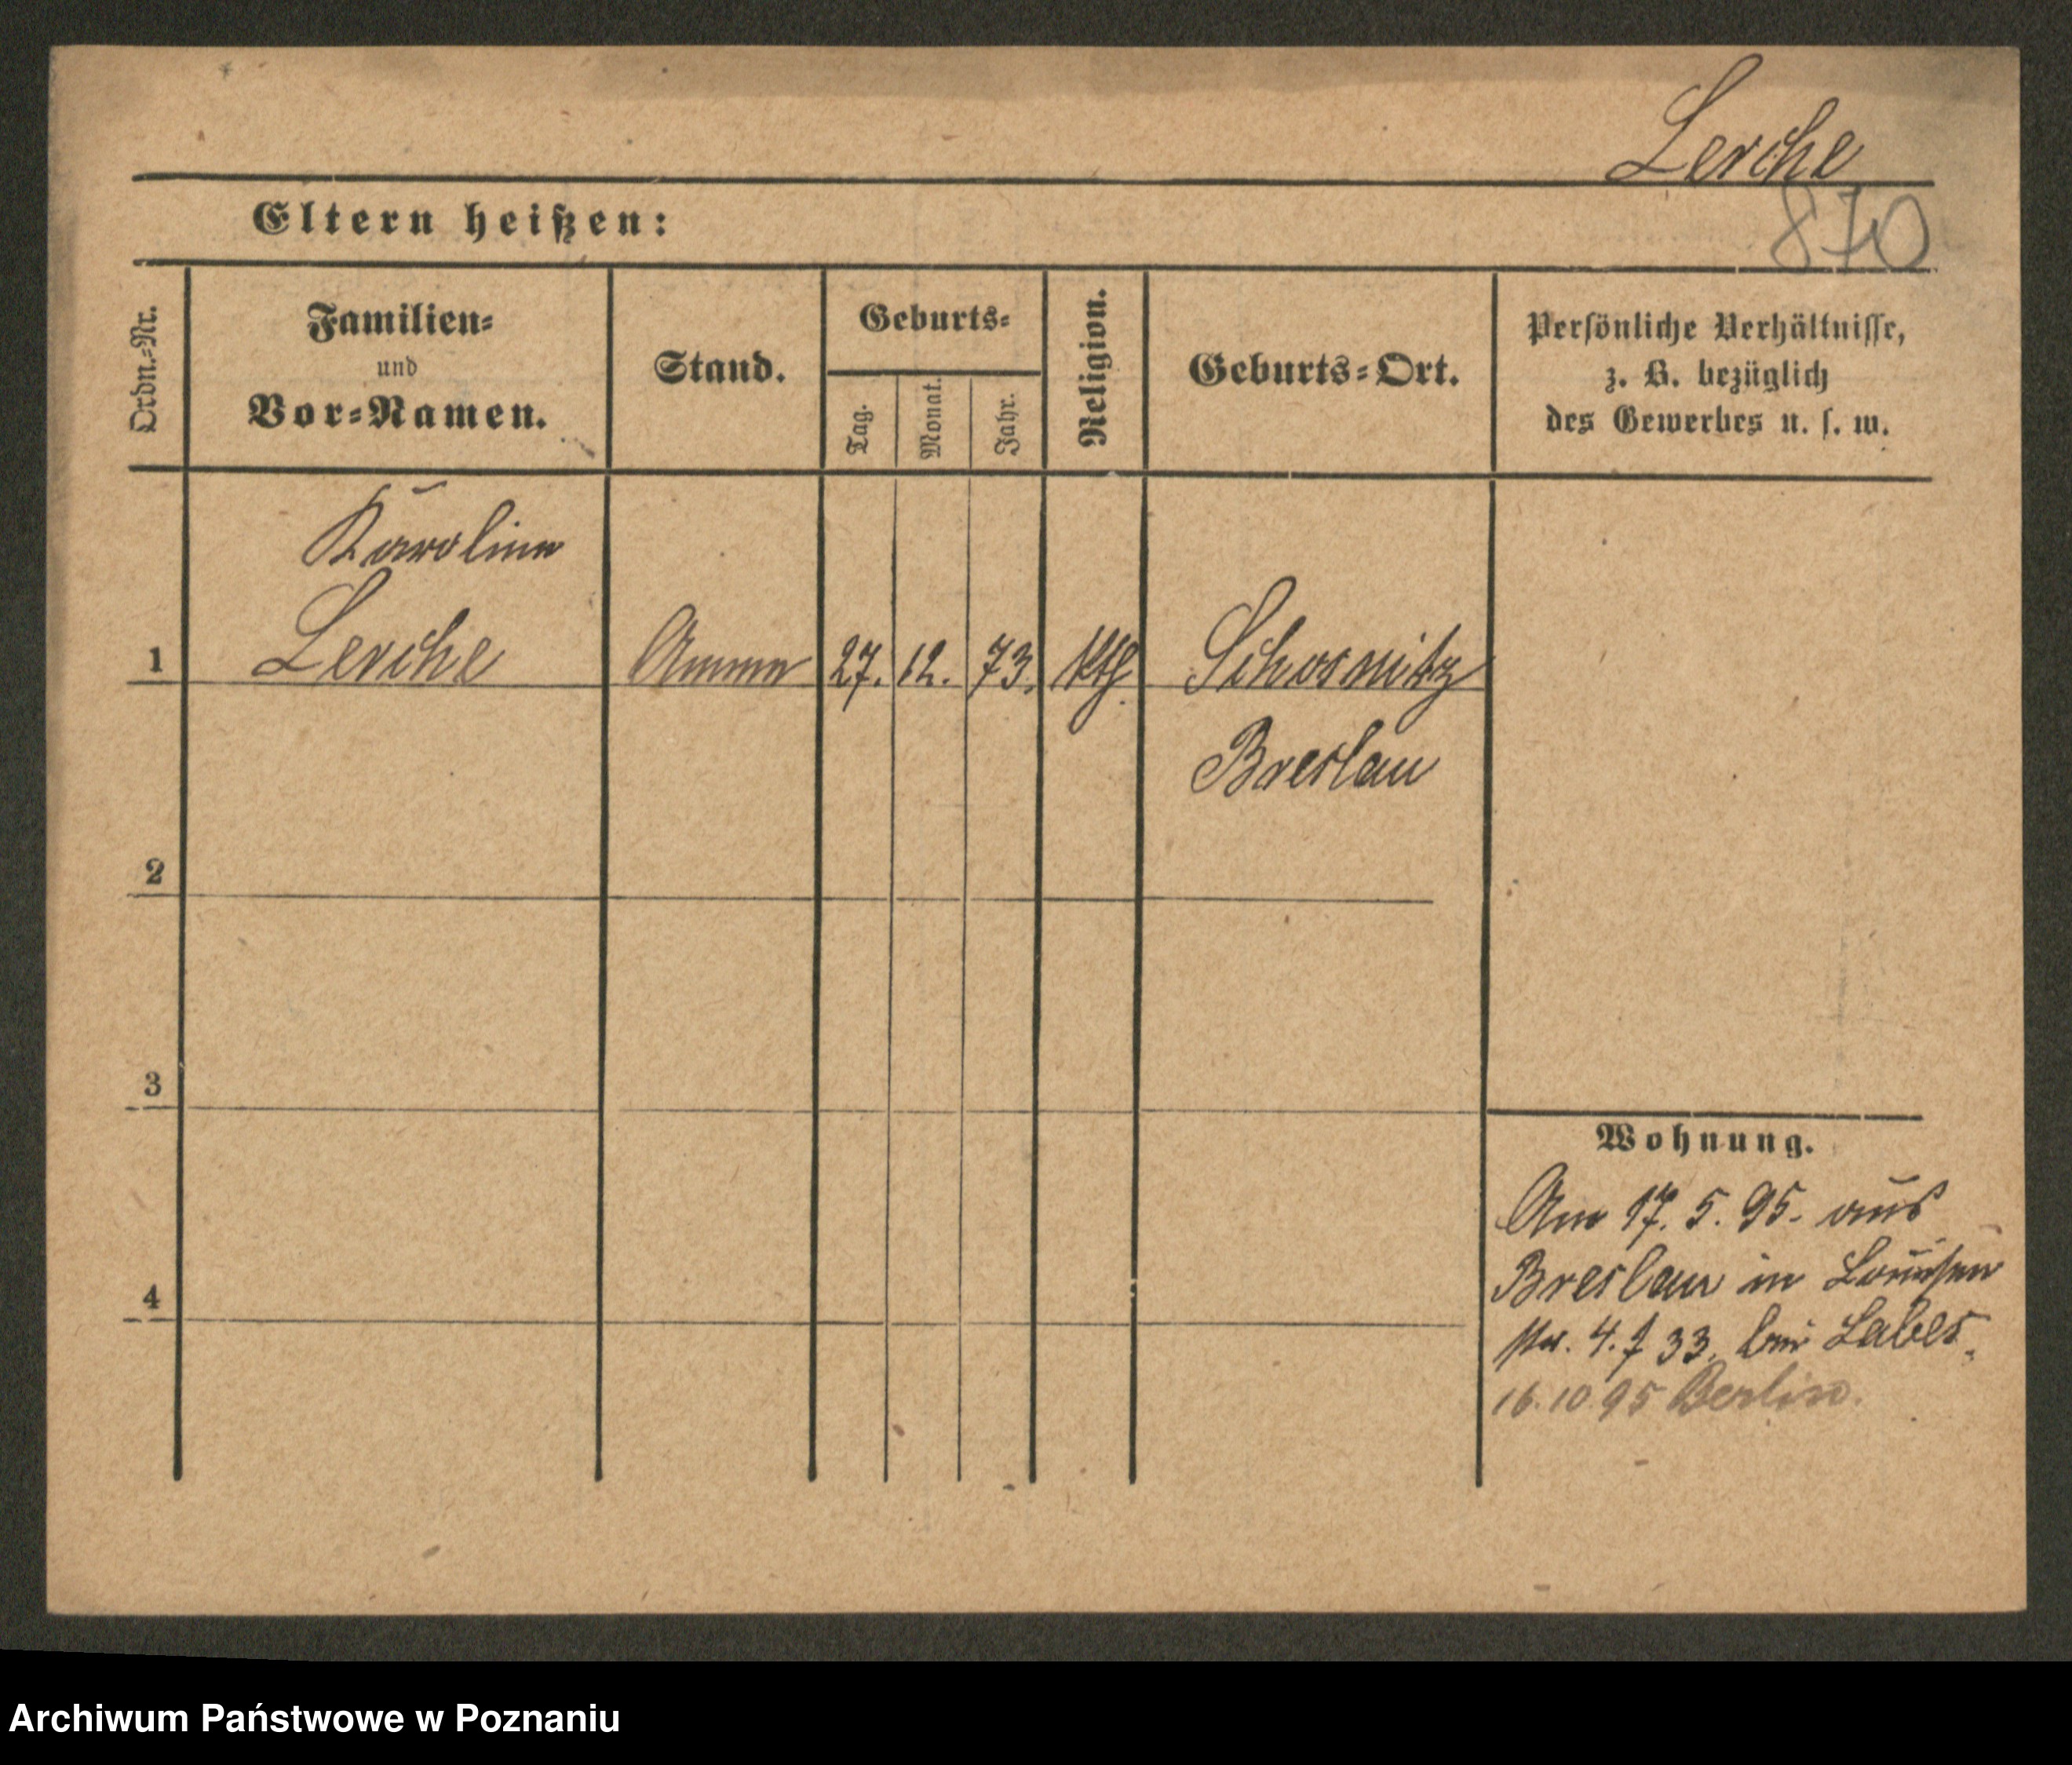 Lerche
870
Eltern heißen:
Ordn.-Nr.
Familien-
und
Vor-Namen.
Stand.
Geburts-
Tag.
Monat.
Jahr.
Religion.
Geburts-Ort.
Persönliche Verhältnisse,
z. B. bezüglich
des Gewerbes u. s. w.
Karoline
1 Lerche Amme 27. 12. 73. kth Schosnitz
Breslau
2
3
4
Wohnung.
Am 17. 5. 95. aus
Breslau in Louisen
str. 4. f 33. bei Labes.
16.10 95 Berlin.
Archiwum Państwowe w Poznaniu